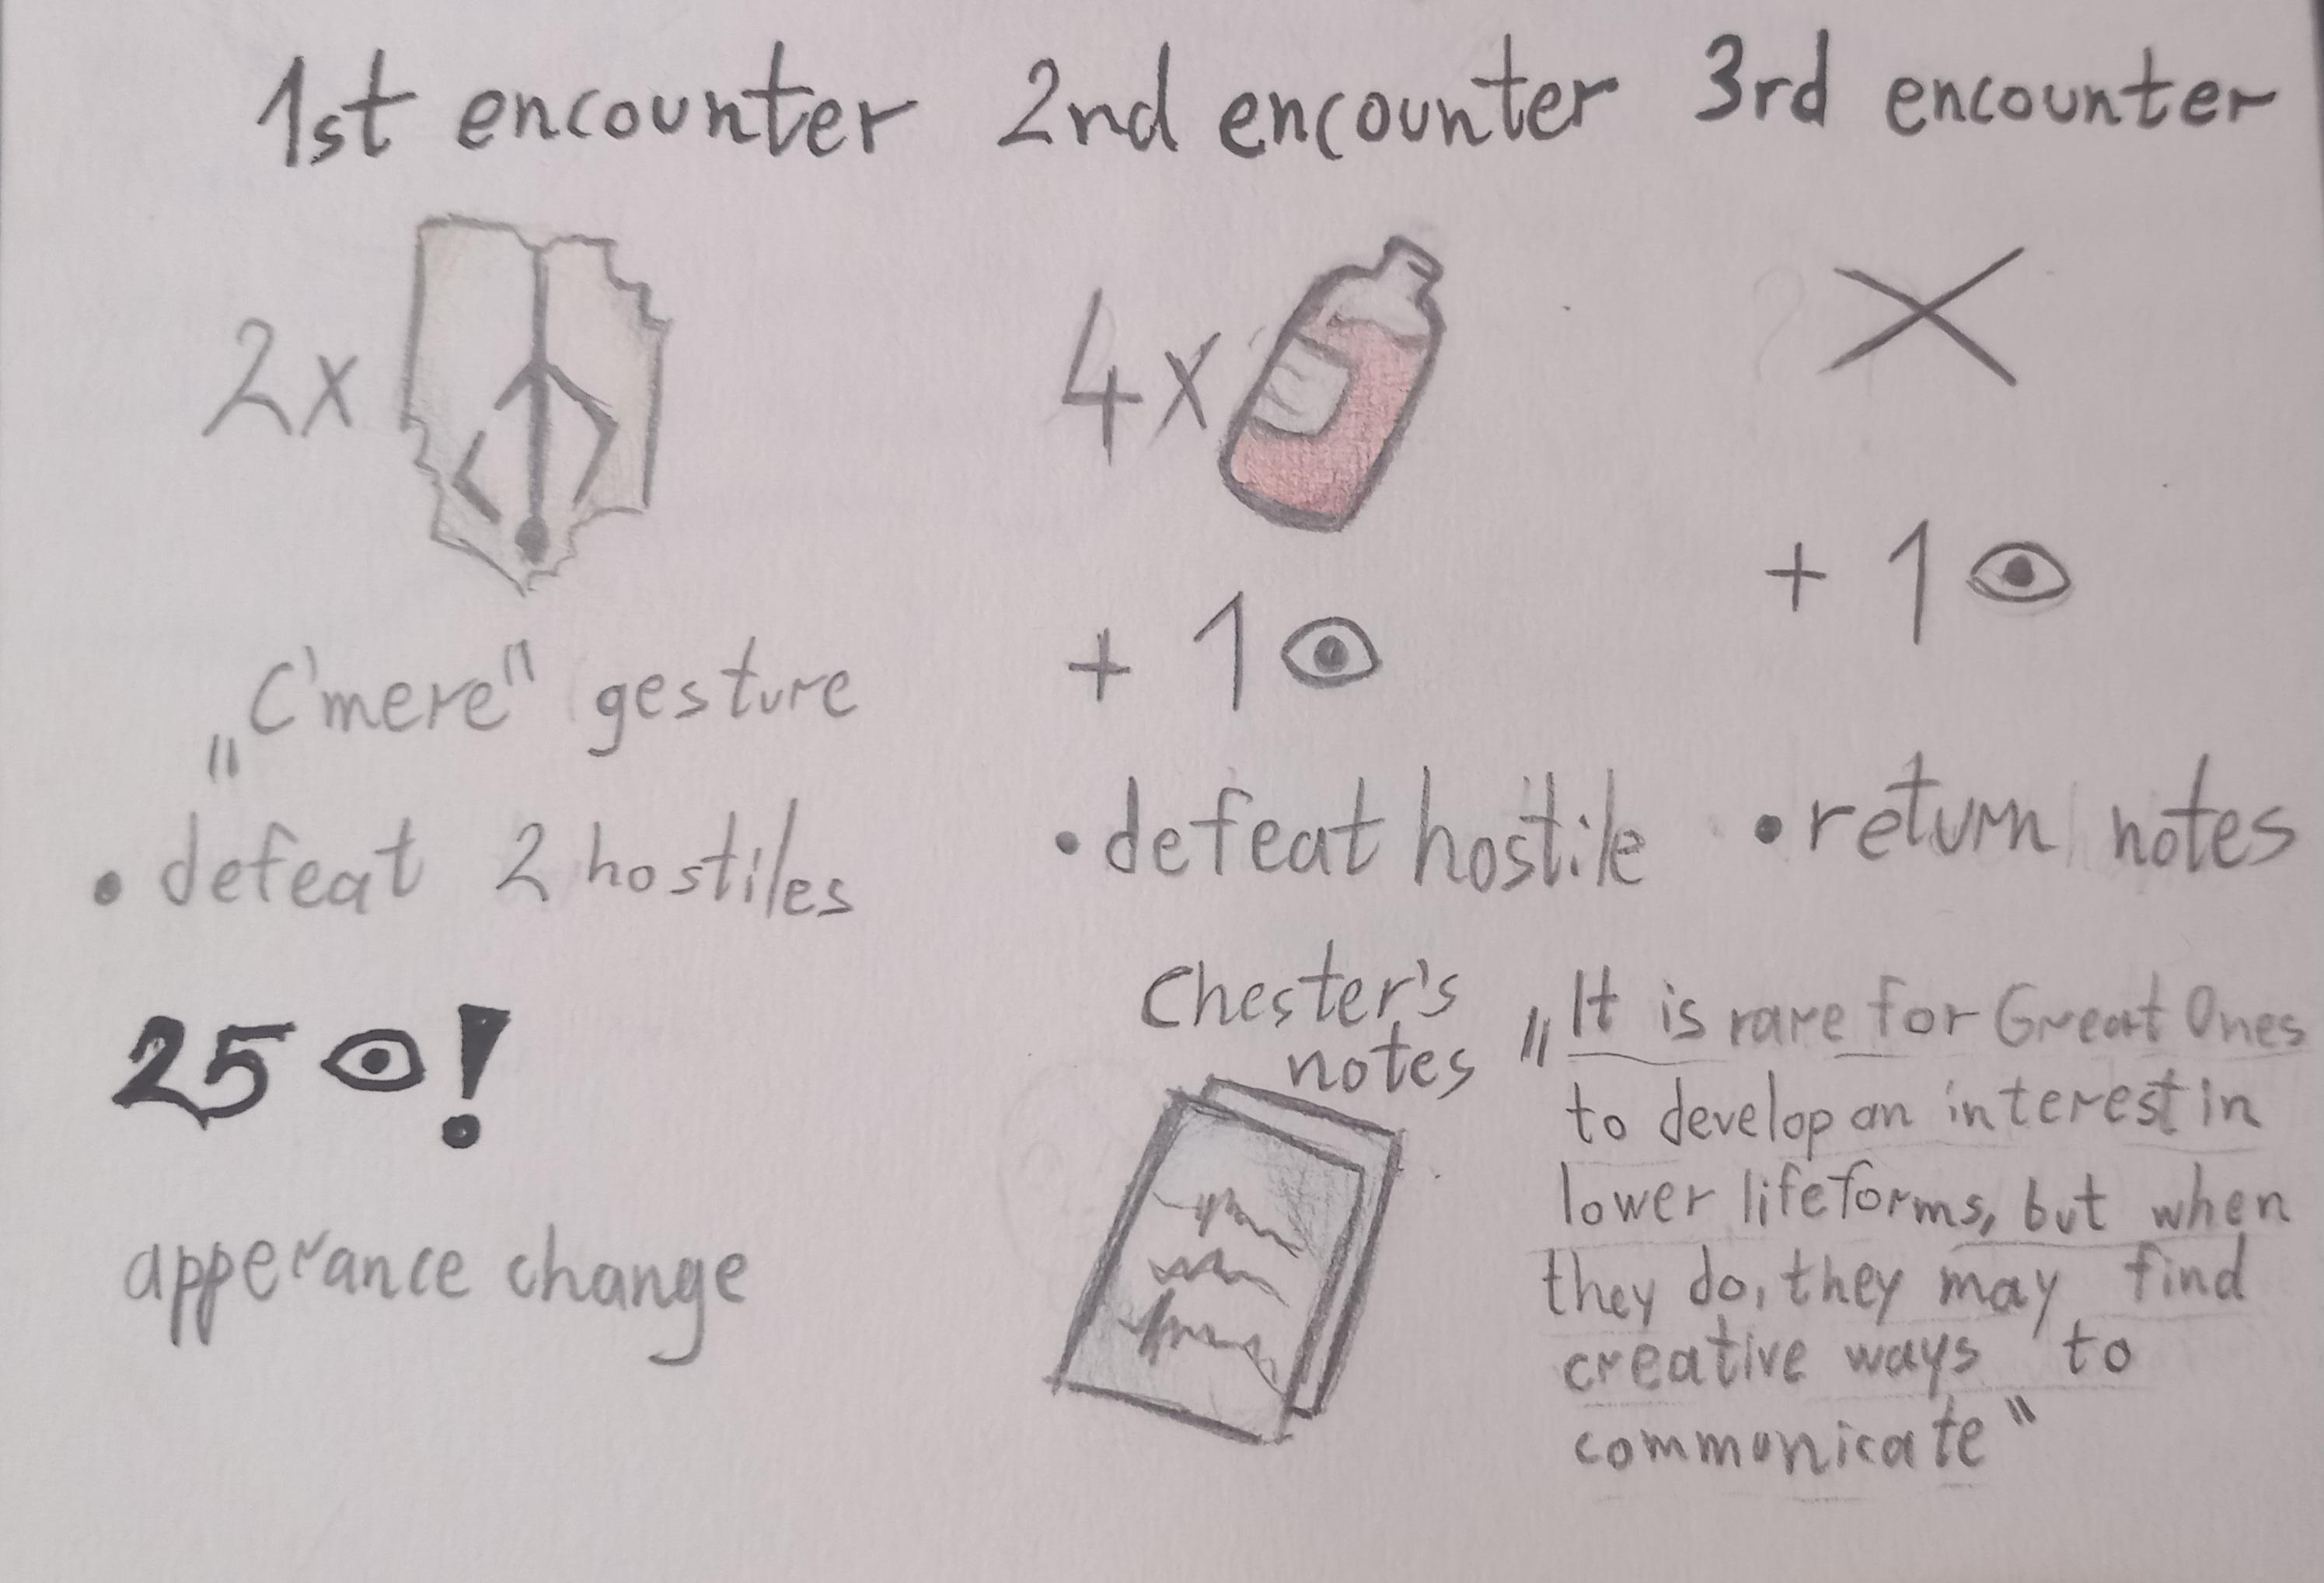 1st encounter
2x
„C'mere" gesture
• defeat 2 hostiles
25 !
apperance change
2nd encounter
4x
+ 1
• defeat hostile
Chester's
notes
3rd encounter
+ 1
• return notes
„It is rare for Great Ones
to develop an interest in
lower lifeforms, but when
they do, they may find
creative ways to
communicate"